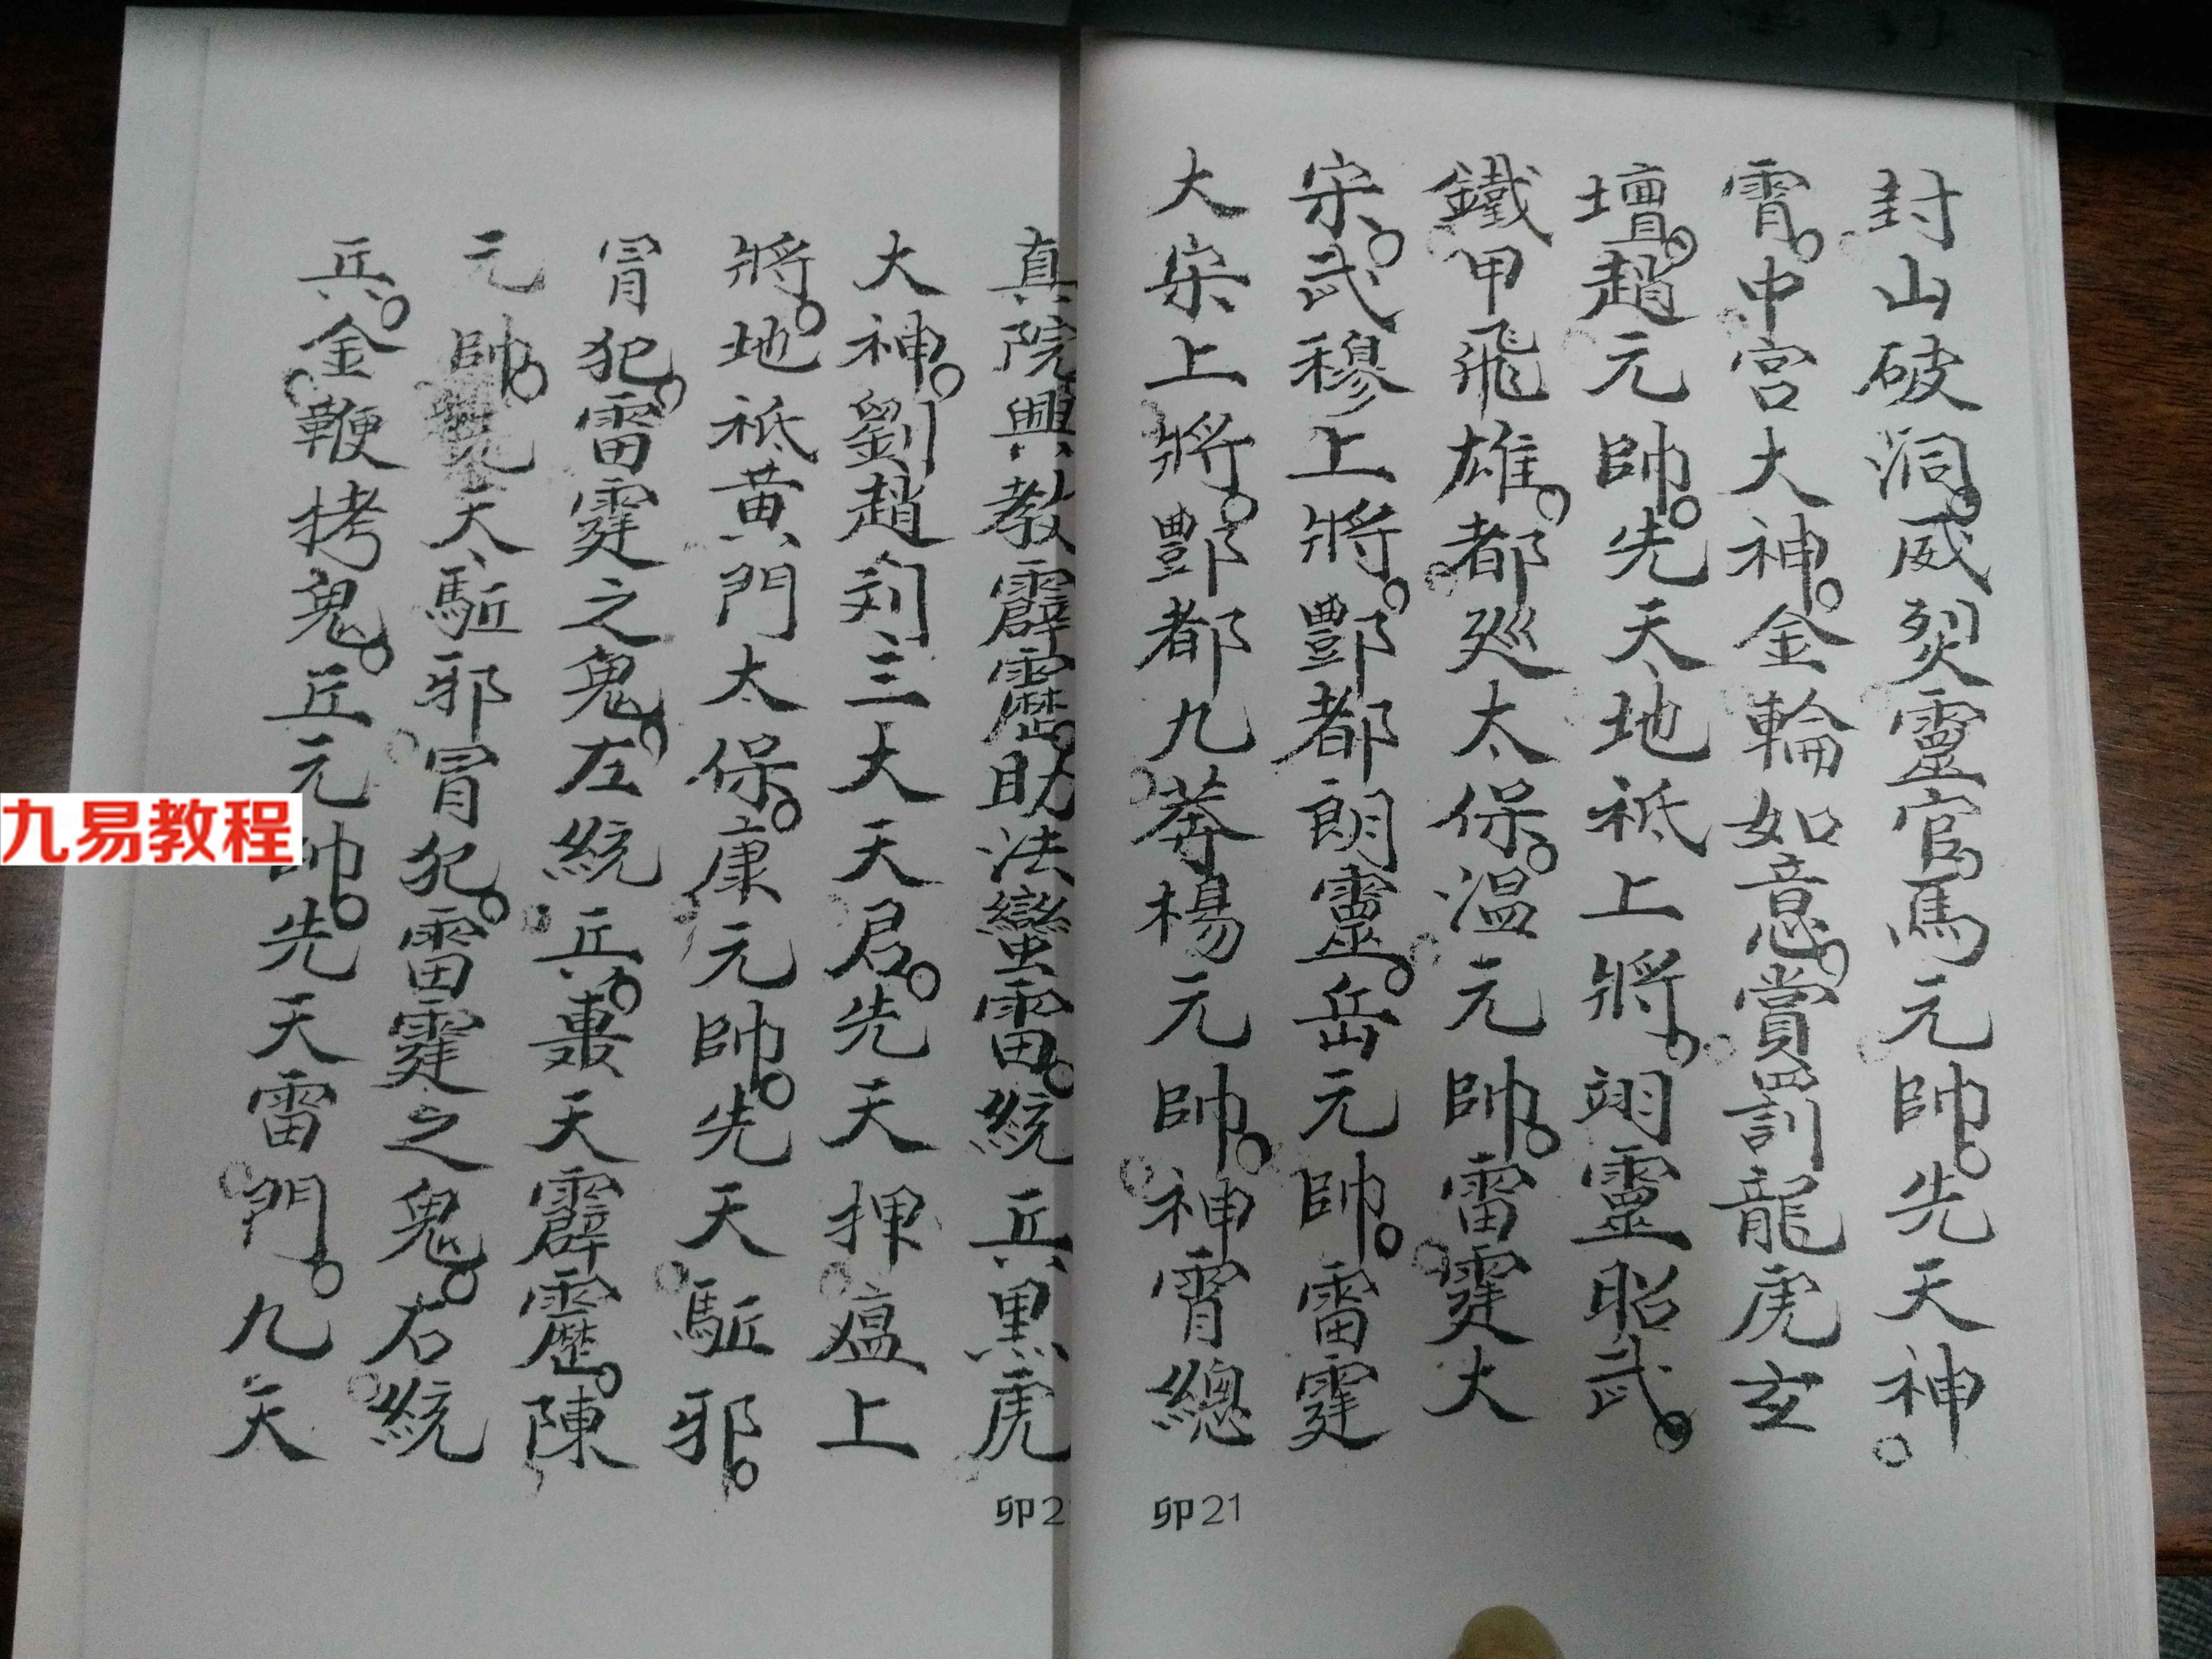 封山破洞。威烈靈官馬元帥。先天神。
霄。中宮大神。金輪如意。賞罰龍虎玄
壇。趙元帥。先天地祇上將。翊靈昭武。
鐵甲飛雄。都巡太保。溫元帥。雷霆大
宋。武穆上將。酆都朗靈。岳元帥。雷霆
大宋上將。酆都九莽楊元帥。神霄總
卯21
真院興教霹靂。助法蠻雷。統兵黑虎
大神。劉趙刘三大天君。先天押瘟上
將。地祇黃門太保。康元帥。先天駈邪。
冒犯。雷霆之鬼。左統兵。轟天霹靂。陳
元帥。天駈邪冒犯。雷霆之鬼。右統
兵。金鞭拷鬼。丘元帥。先天雷門。九天
卯2
九易教程